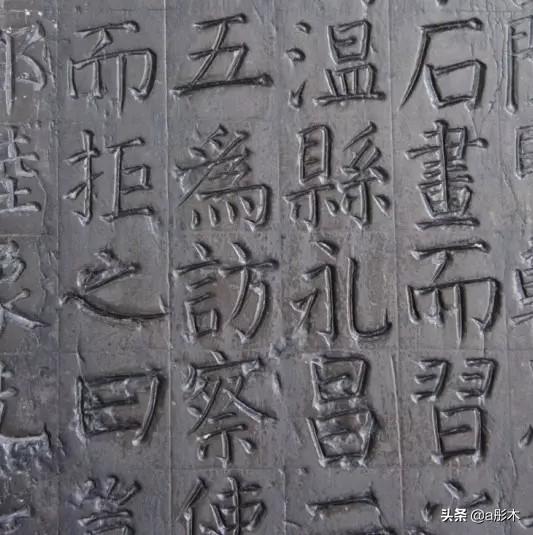 石畫而習
温縣永昌
五為訪察使
而拒之曰
头条 @a彤木